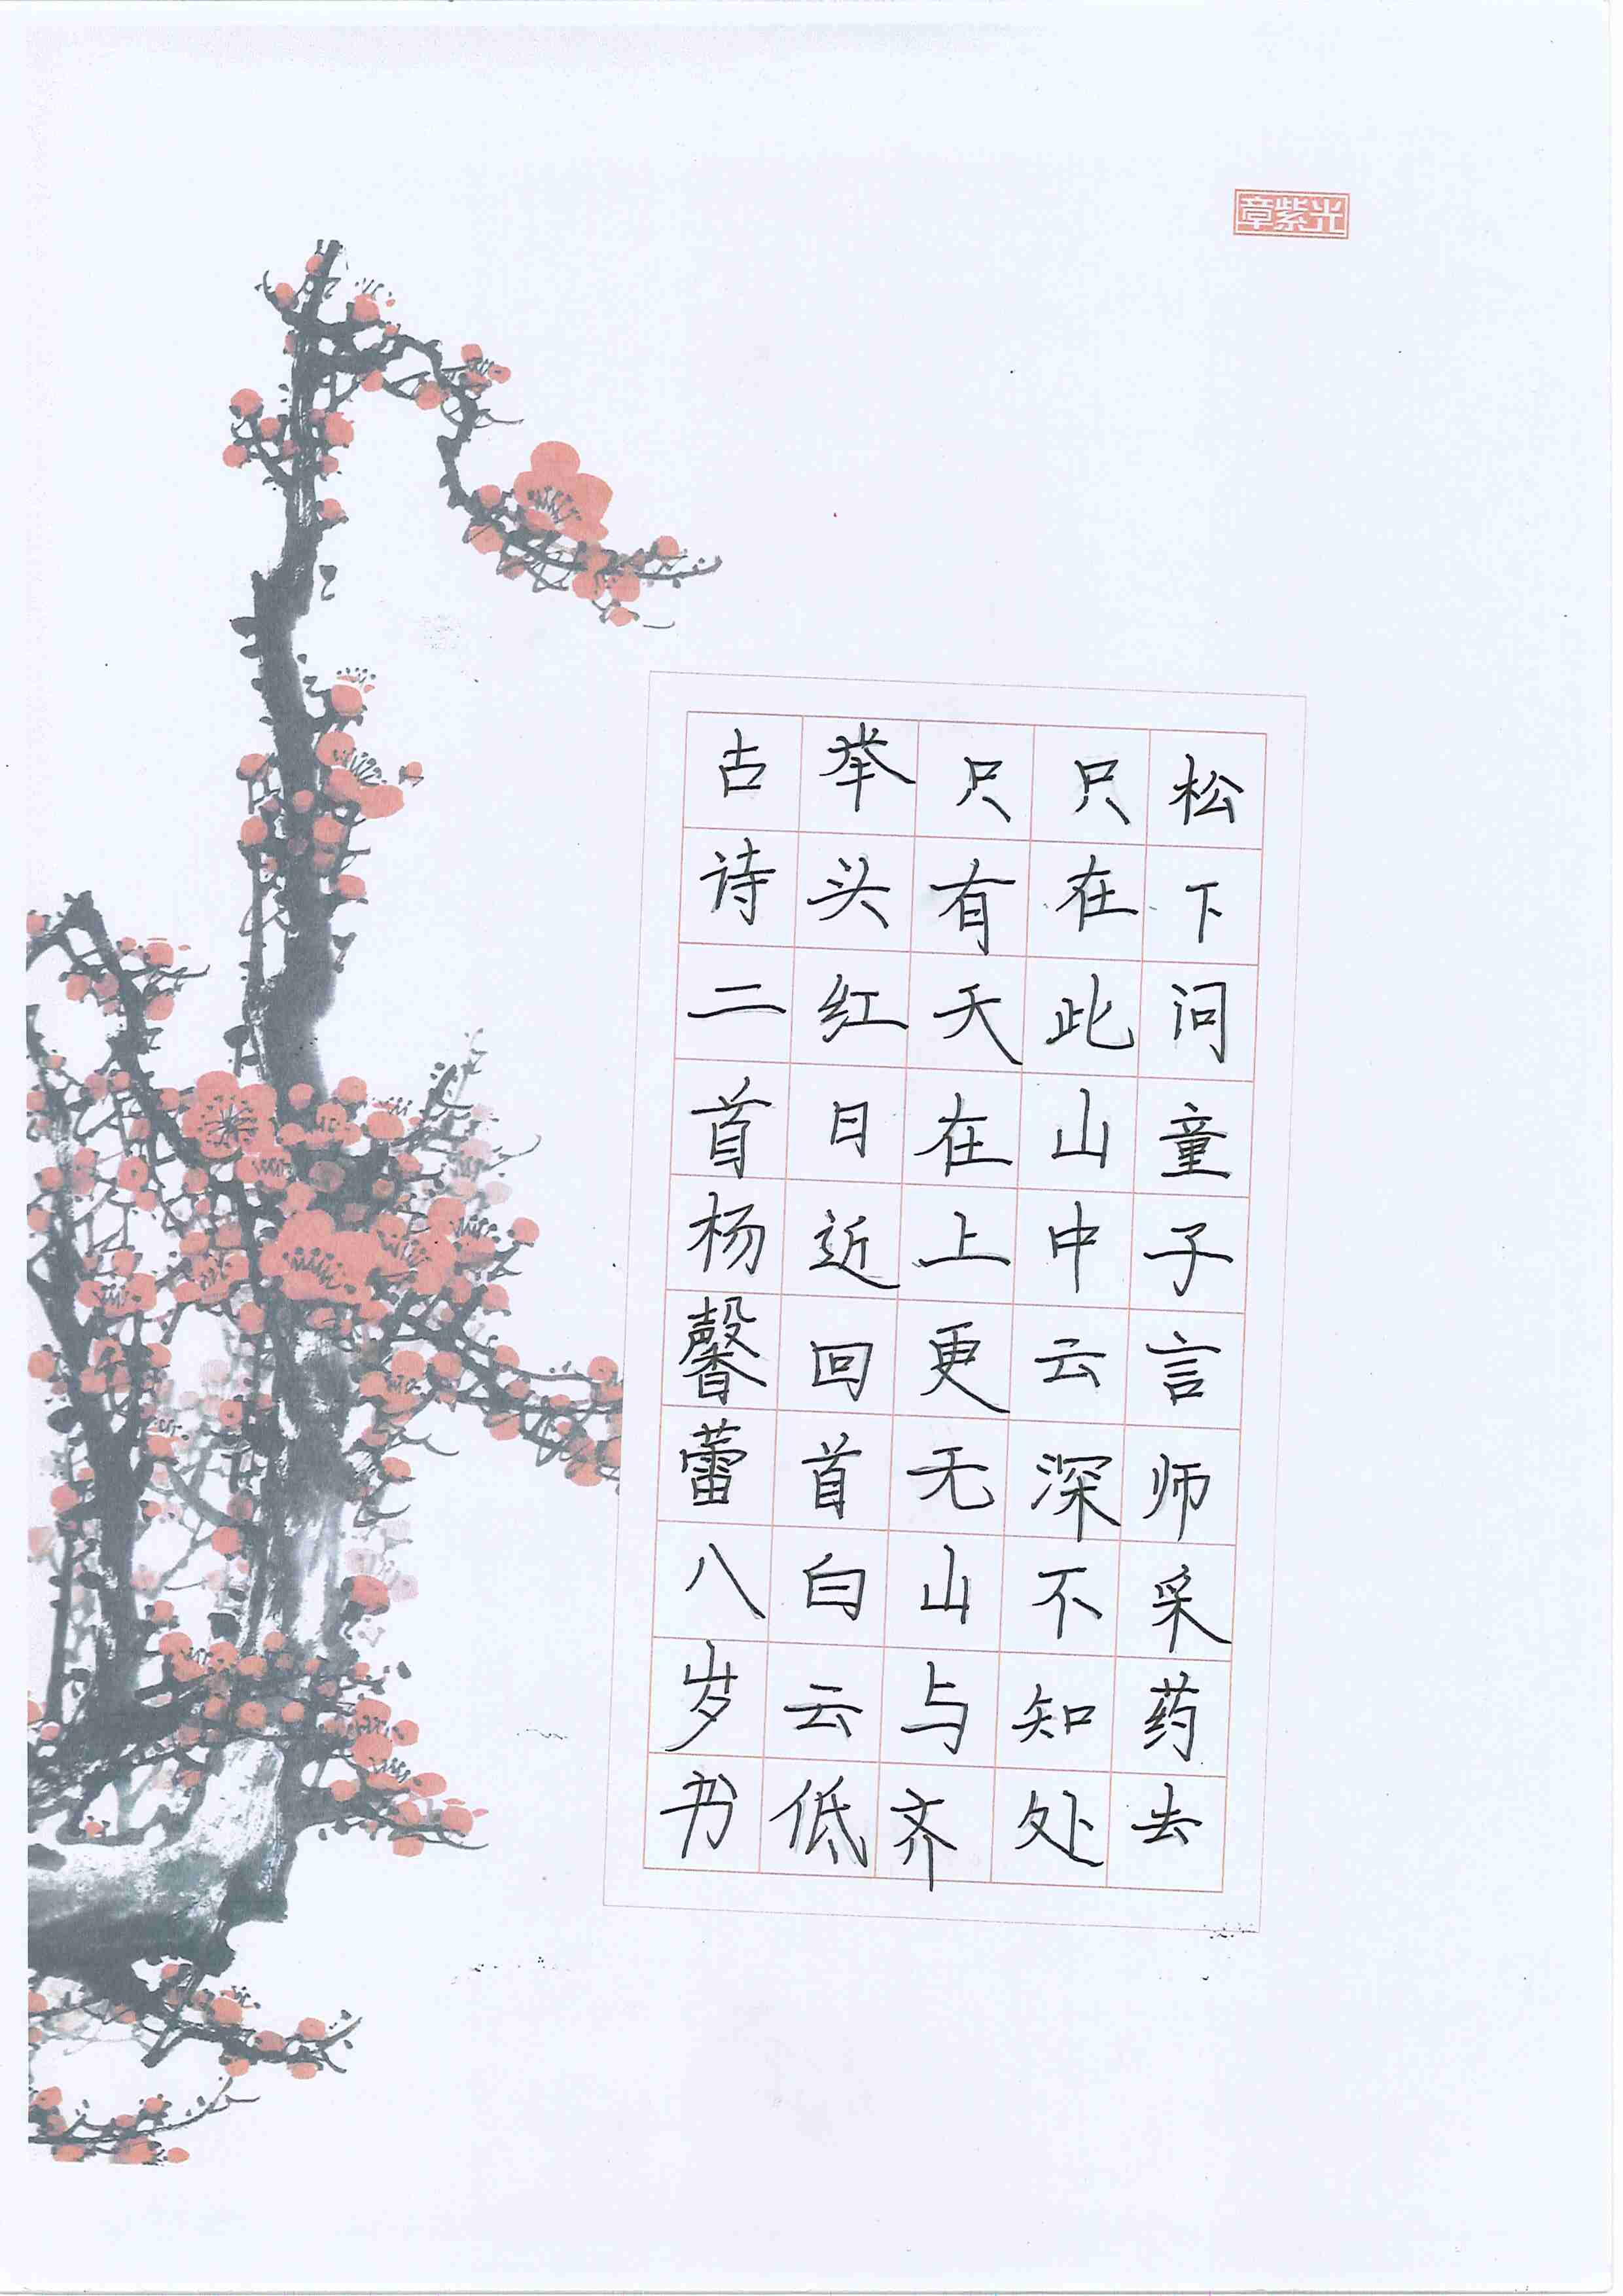 章紫光
松下问童子言师采药去
只在此山中云深不知处
只有天在上更无山与齐
举头红日近回首白云低
古诗二首杨馨蕾八岁书